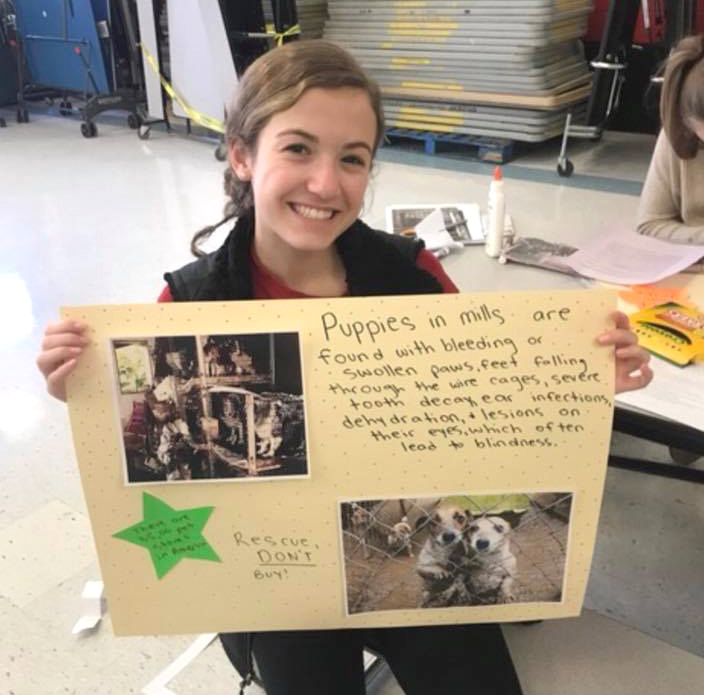 Puppies in mills are
found with bleeding or
swollen paws, feet falling
through the wire cages, severe
tooth decay, ear infections,
dehydration, + lesions on
their eyes, which often
lead to blindness.
There are
pet
stores
in America
Rescue,
DON'T
BUY!